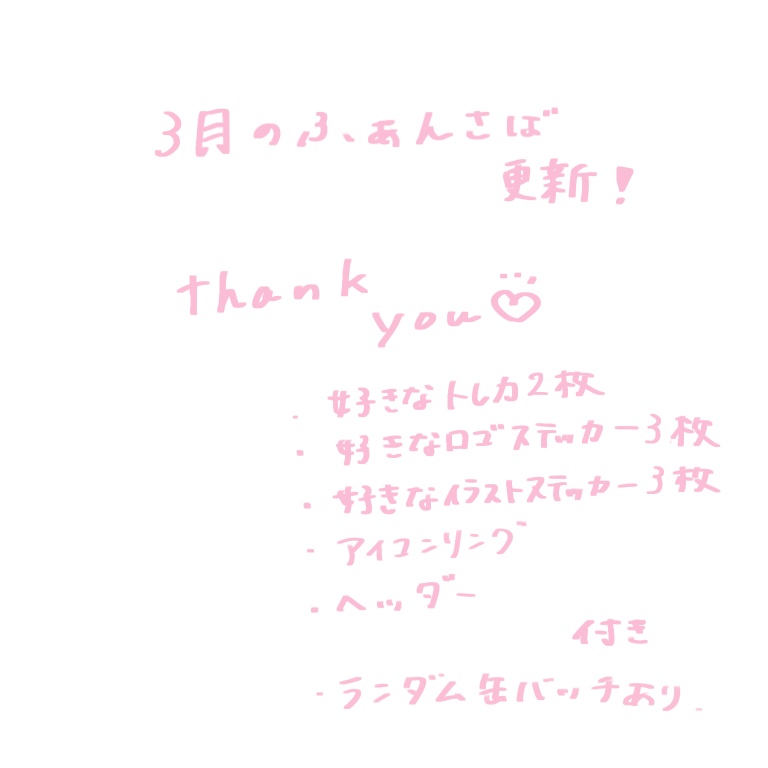 3月のふぁんさば
更新!
thank
you
・好きなトレカ2枚
・好きなロゴステッカー3枚
・好きなイラストステッカー3枚
・アイコンリング
・ヘッダー
付き
・ランダム缶バッチあり.